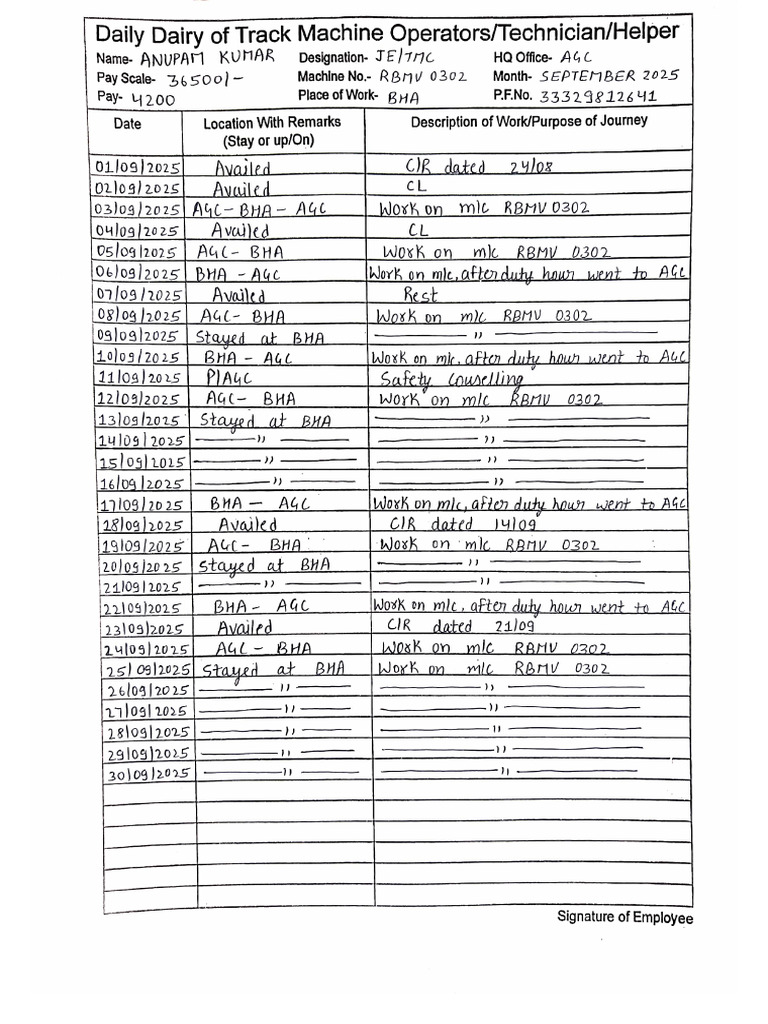 Daily Dairy of Track Machine Operators/Technician/Helper
Name- ANUPAM KUMAR Designation- JE/TMC HQ Office- AGC
Pay Scale- 36500/- Machine No.- RBMV 0302 Month- SEPTEMBER 2025
Pay- 4200 Place of Work- BHA P.F.No. 33329812641
Date Location With Remarks (Stay or up/On) Description of Work/Purpose of Journey
01/09/2025 Availed C/R dated 24/08
02/09/2025 Availed CL
03/09/2025 AGC-BHA-AGC Work on m/c RBMV 0302
04/09/2025 Availed CL
05/09/2025 AGC-BHA Work on m/c RBMV 0302
06/09/2025 BHA-AGC Work on m/c, after duty hour went to AGC
07/09/2025 Availed Rest
08/09/2025 AGC-BHA Work on m/c RBMV 0302
09/09/2025 Stayed at BHA — " —
10/09/2025 BHA-AGC Work on m/c, after duty hour went to AGC
11/09/2025 P/AGC Safety Couselling
12/09/2025 AGC-BHA Work on m/c RBMV 0302
13/09/2025 Stayed at BHA — " —
14/09/2025 — " — — " —
15/09/2025 — " — — " —
16/09/2025 — " — — " —
17/09/2025 BHA - AGC Work on m/c, after duty hour went to AGC
28/09/2025 Availed C/R dated 14/09
19/09/2025 AGC- BHA Work on m/c RBMV 0302
20/09/2025 Stayed at BHA — " —
21/09/2025 — " — — " —
22/09/2025 BHA- AGC Work on m/c, after duty hour went to AGC
23/09/2025 Availed C/R dated 21/09
24/09/2025 AGC- BHA Work on m/c RBMV 0302
25/09/2025 Stayed at BHA Work on m/c RBMV 0302
26/09/2025 — " — — " —
27/09/2025 — " — — " —
28/09/2025 — " — — " —
29/09/2025 — " — — " —
30/09/2025 — " — — " —
Signature of Employee